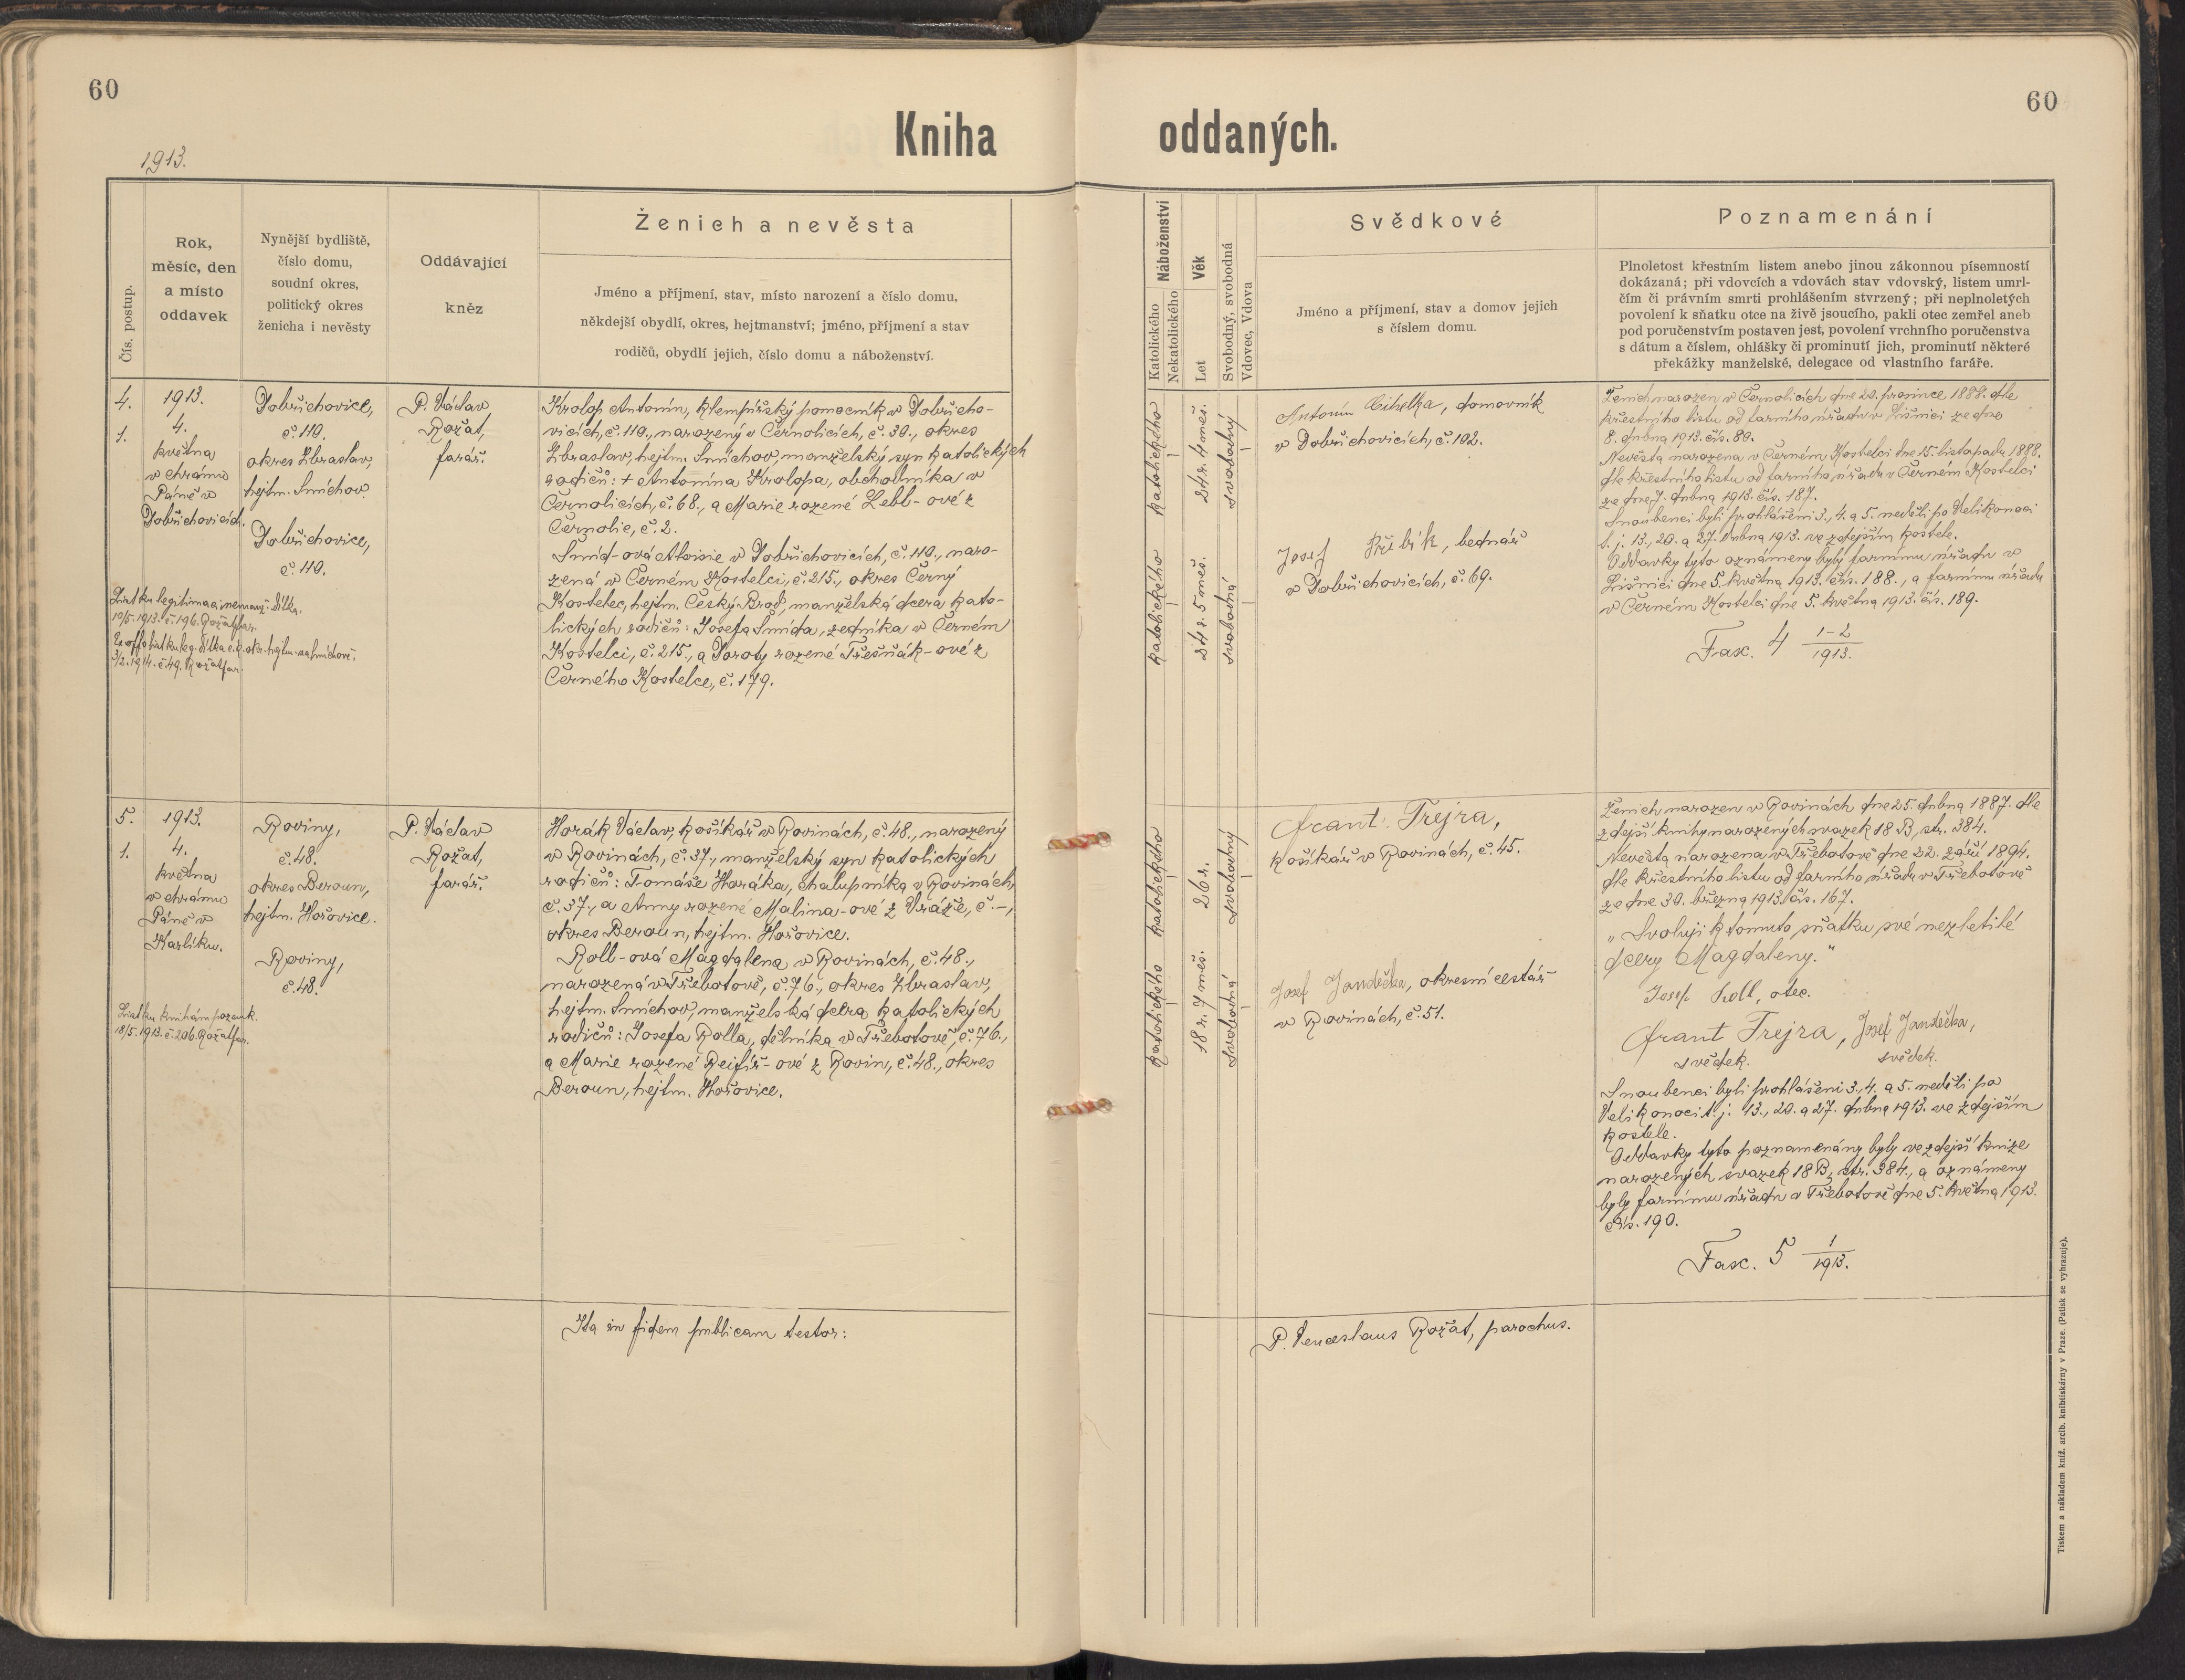 60
60
Kniha oddaných.
1913.
Čís. postup.
Rok,
měsíc, den
a místo
oddavek
Nynější bydliště,
číslo domu,
soudní okres,
politický okres
ženicha i nevěsty
Oddávající
kněz
Ženich a nevěsta
Jméno a příjmení, stav, místo narození a číslo domu,
někdejší obydlí, okres, hejtmanství; jméno, příjmení a stav
rodičů, obydlí jejich, číslo domu a náboženství.
Náboženství
Katolického
Nekatolického
Věk
Let
Svobodný, svobodná
Vdovec, Vdova
Svědkové
Jméno a příjmení, stav a domov jejich
s číslem domu.
Poznamenání
Plnoletost křestním listem anebo jinou zákonnou písemností
dokázaná; při vdovcích a vdovách stav vdovský, listem umrl-
čím či právním smrti prohlášením stvrzený; při neplnoletých
povolení k sňatku otce na živě jsoucího, pakli otec zemřel aneb
pod poručenstvím postaven jest, povolení vrchního poručenstva
s dátum a číslem, ohlášky či prominutí jich, prominutí některé
překážky manželské, delegace od vlastního faráře.
4.
1.
1913.
4.
května
v chrámu
Páně v
Dobřichovicích.
Dobřichovice,
č. 110.
okres Zbraslav,
hejtm. Smíchov.
Dobřichovice,
č. 110.
P. Václav
Rožat,
farář.
Krolop Antonín, klempířský pomocník v Dobřicho-
vicích, č. 110., narozený v Černolicích, č. 30., okres
Zbraslav, hejtm. Smíchov, manželský syn katolických
rodičů: + Antonína Krolopa, obchodníka v
Černolicích, č. 68., a Marie rozené Lebl-ové z
Černolic, č. 2.
Šmíd-ová Aloisie v Dobřichovicích, č. 110., naro-
zená v Černém Kostelci, č. 215., okres Černý
Kostelec, hejtm. Český Brod, manželská dcera kato-
lických rodičů: Josefa Šmída, zedníka v Černém
Kostelci, č. 215., a Doroty rozené Třešňák-ové z
Černého Kostelce, č. 179.
Lístku legitimaci nemanž. dítka.
10/5. 1913. č. 196. Rožat far.
3/2. 1914. č. 49. Rožat far.
katolického
24 r. 4 měs.
svobodný
katolického
24 r. 5 měs.
svobodná
Antonín Cihelka, domovník
v Dobřichovicích, č. 102.
Josef Přibík, bednář
v Dobřichovicích, č. 69.
Ženich narozen v Černolicích dne 20. prosince 1888. dle
křestního listu od farního úřadu v Líšnici ze dne
8. dubna 1913. čís. 80.
Nevěsta narozena v Černém Kostelci dne 15. listopadu 1888.
dle křestního listu od farního úřadu v Černém Kostelci
ze dne 7. dubna 1913. čís. 187.
Snoubenci byli prohlášeni 3., 4. a 5. neděli po Velikonoci
t. j. 13., 20. a 27. dubna 1913. ve zdejším kostele.
Oddavky tyto oznámeny byly farnímu úřadu v
Líšnici dne 5. května 1913. čís. 188., a farnímu úřadu
v Černém Kostelci dne 5. května 1913. čís. 189.
Fasc. 4 1-2/1913.
5.
1.
1913.
4.
května
v chrámu
Páně v
Karlíku.
Roviny,
č. 48.
okres Beroun,
hejtm. Hořovice.
Roviny,
č. 48.
P. Václav
Rožat,
farář.
Horák Václav, košíkář v Rovinách, č. 48., narozený
v Rovinách, č. 37., manželský syn katolických
rodičů: Tomáše Horáka, chalupníka v Rovinách,
č. 37., a Anny rozené Malina-ové z Vráže, č. –,
okres Beroun, hejtm. Hořovice.
Roll-ová Magdalena v Rovinách, č. 48.,
narozená v Třebotově, č. 76., okres Zbraslav,
hejtm. Smíchov, manželská dcera katolických
rodičů: Josefa Rolla, dělníka v Třebotově, č. 76.,
a Marie rozené Rejfíř-ové z Rovin, č. 48., okres
Beroun, hejtm. Hořovice.
18/5. 1913. č. 206. Rožat far.
katolického
26 r.
svobodný
katolického
18 r. 7 měs.
svobodná
Frant. Trejra,
košíkář v Rovinách, č. 45.
Josef Jandečka, okresní cestář
v Rovinách, č. 51.
Ženich narozen v Rovinách dne 25. dubna 1887. dle
zdejší knihy narozených svazek 18 B, str. 384.
Nevěsta narozena v Třebotově dne 22. září 1894.
dle křestního listu od farního úřadu v Třebotově
ze dne 30. března 1913. čís. 167.
„Svoluji k tomuto sňatku své nezletilé
dcery Magdaleny.“
Josef Roll, otec.
Frant Trejra, Josef Jandečka,
svědek. svědek.
Snoubenci byli prohlášeni 3., 4. a 5. neděli po
Velikonoci t. j. 13., 20. a 27. dubna 1913. ve zdejším
kostele.
Oddavky tyto poznamenány byly ve zdejší knize
narozených svazek 18 B, str. 384., a oznámeny
byly farnímu úřadu v Třebotově dne 5. května 1913.
čís. 190.
Fasc. 5 1/1913.
Ita in fidem publicam testor:
P. Venceslaus Rožat, parochus.
Tiskem a nákladem kníž. arcib. knihtiskárny v Praze. (Patisk se vyhrazuje).